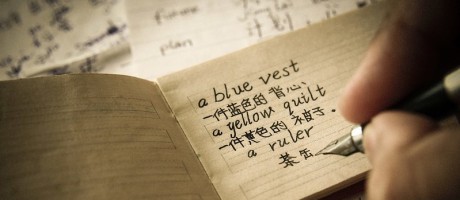 future
plan
a blue vest
一件蓝色的 背心、
a yellow quilt
一件黄色的 被子.
a ruler
茶缶